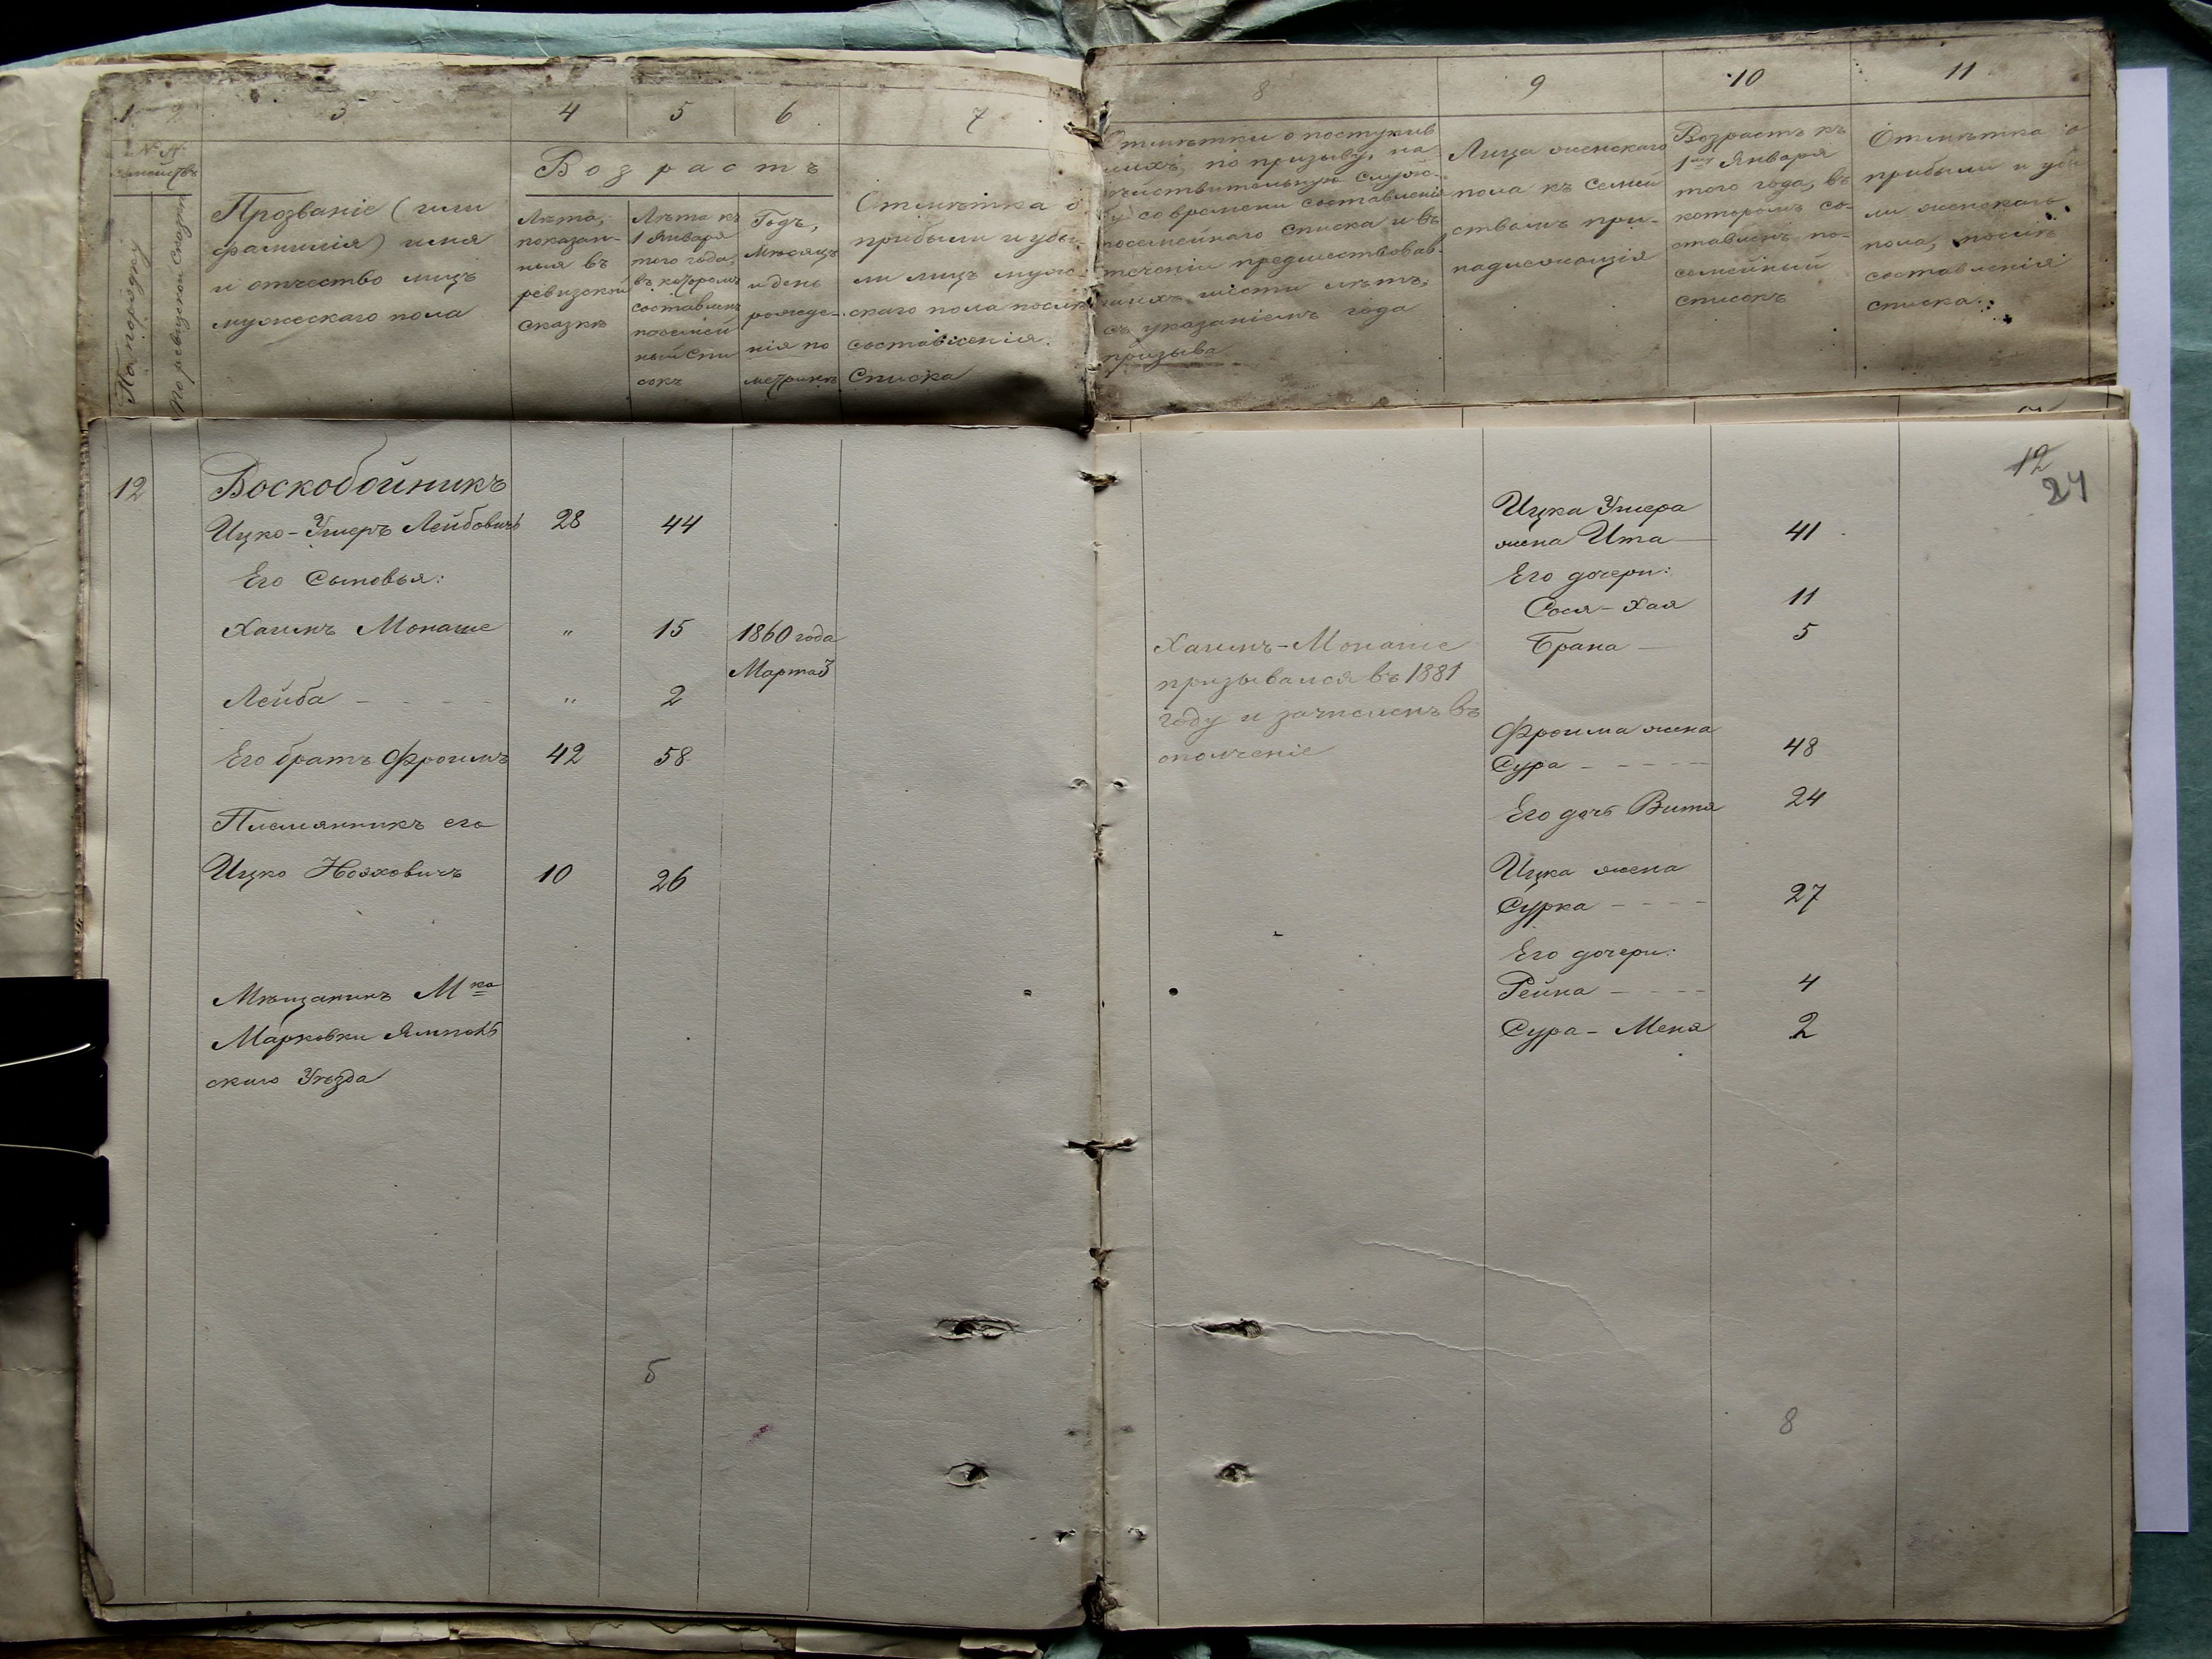 1 2 3 4 5 6 7
№ №
семействъ
По порядку
По ревизской сказкѣ
Прозваніе (или
фамилія) имя
и отчество лицъ
мужескаго пола
Возрастъ
Лѣта,
показан-
ныя въ
ревизской
сказкѣ
Лѣта къ
1 Января
того года,
въ которомъ
составленъ
посемей
ный спи
сокъ
Годъ,
мѣсяцъ
и день
рожде-
нія по
метрикѣ
Отмѣтка о
прибыли и убы-
ли лицъ муже-
скаго пола послѣ
составленія
Списка
8 9 10 11
Отмѣтки о поступив
шихъ, по призыву, на
дѣйствительную служ-
бу со времени составленія
посемейнаго списка и въ
теченіи предшествовав-
шихъ шести лѣтъ,
съ указаніемъ года
призыва
Лица женскаго
пола къ семей
ствамъ при-
надлежащія
Возрастъ къ
1му Января
того года, въ
которомъ со-
ставленъ по-
семейный
списокъ
Отмѣтка о
прибыли и убы
ли женскаго
пола, послѣ
составленія
списка.
12
24
12
Воскобойникъ
Ицко-Умеръ Лейбовичъ 28 44
Его Сыновья:
Хаимъ Монаше " 15 1860 года
Марта 3
Лейба - - - - " 2
Его братъ Фроимъ 42 58
Племянникъ его
Ицко Нояховичъ 10 26
Мѣщанинъ Мка
Марковки Ямполь
скаго Уѣзда
5
Хаимъ-Монаше
призывался въ 1881
году и зачисленъ въ
ополченіе
Ицка Умера
жена Ита 41
Его дочери:
Сося-Хая 11
Брана 5
Фроима жена
Сура - - - - 48
Его дочь Вита 24
Ицка жена
Сурка - - - - 27
Его дочери:
Рейна - - - - 4
Сура-Меня 2
8